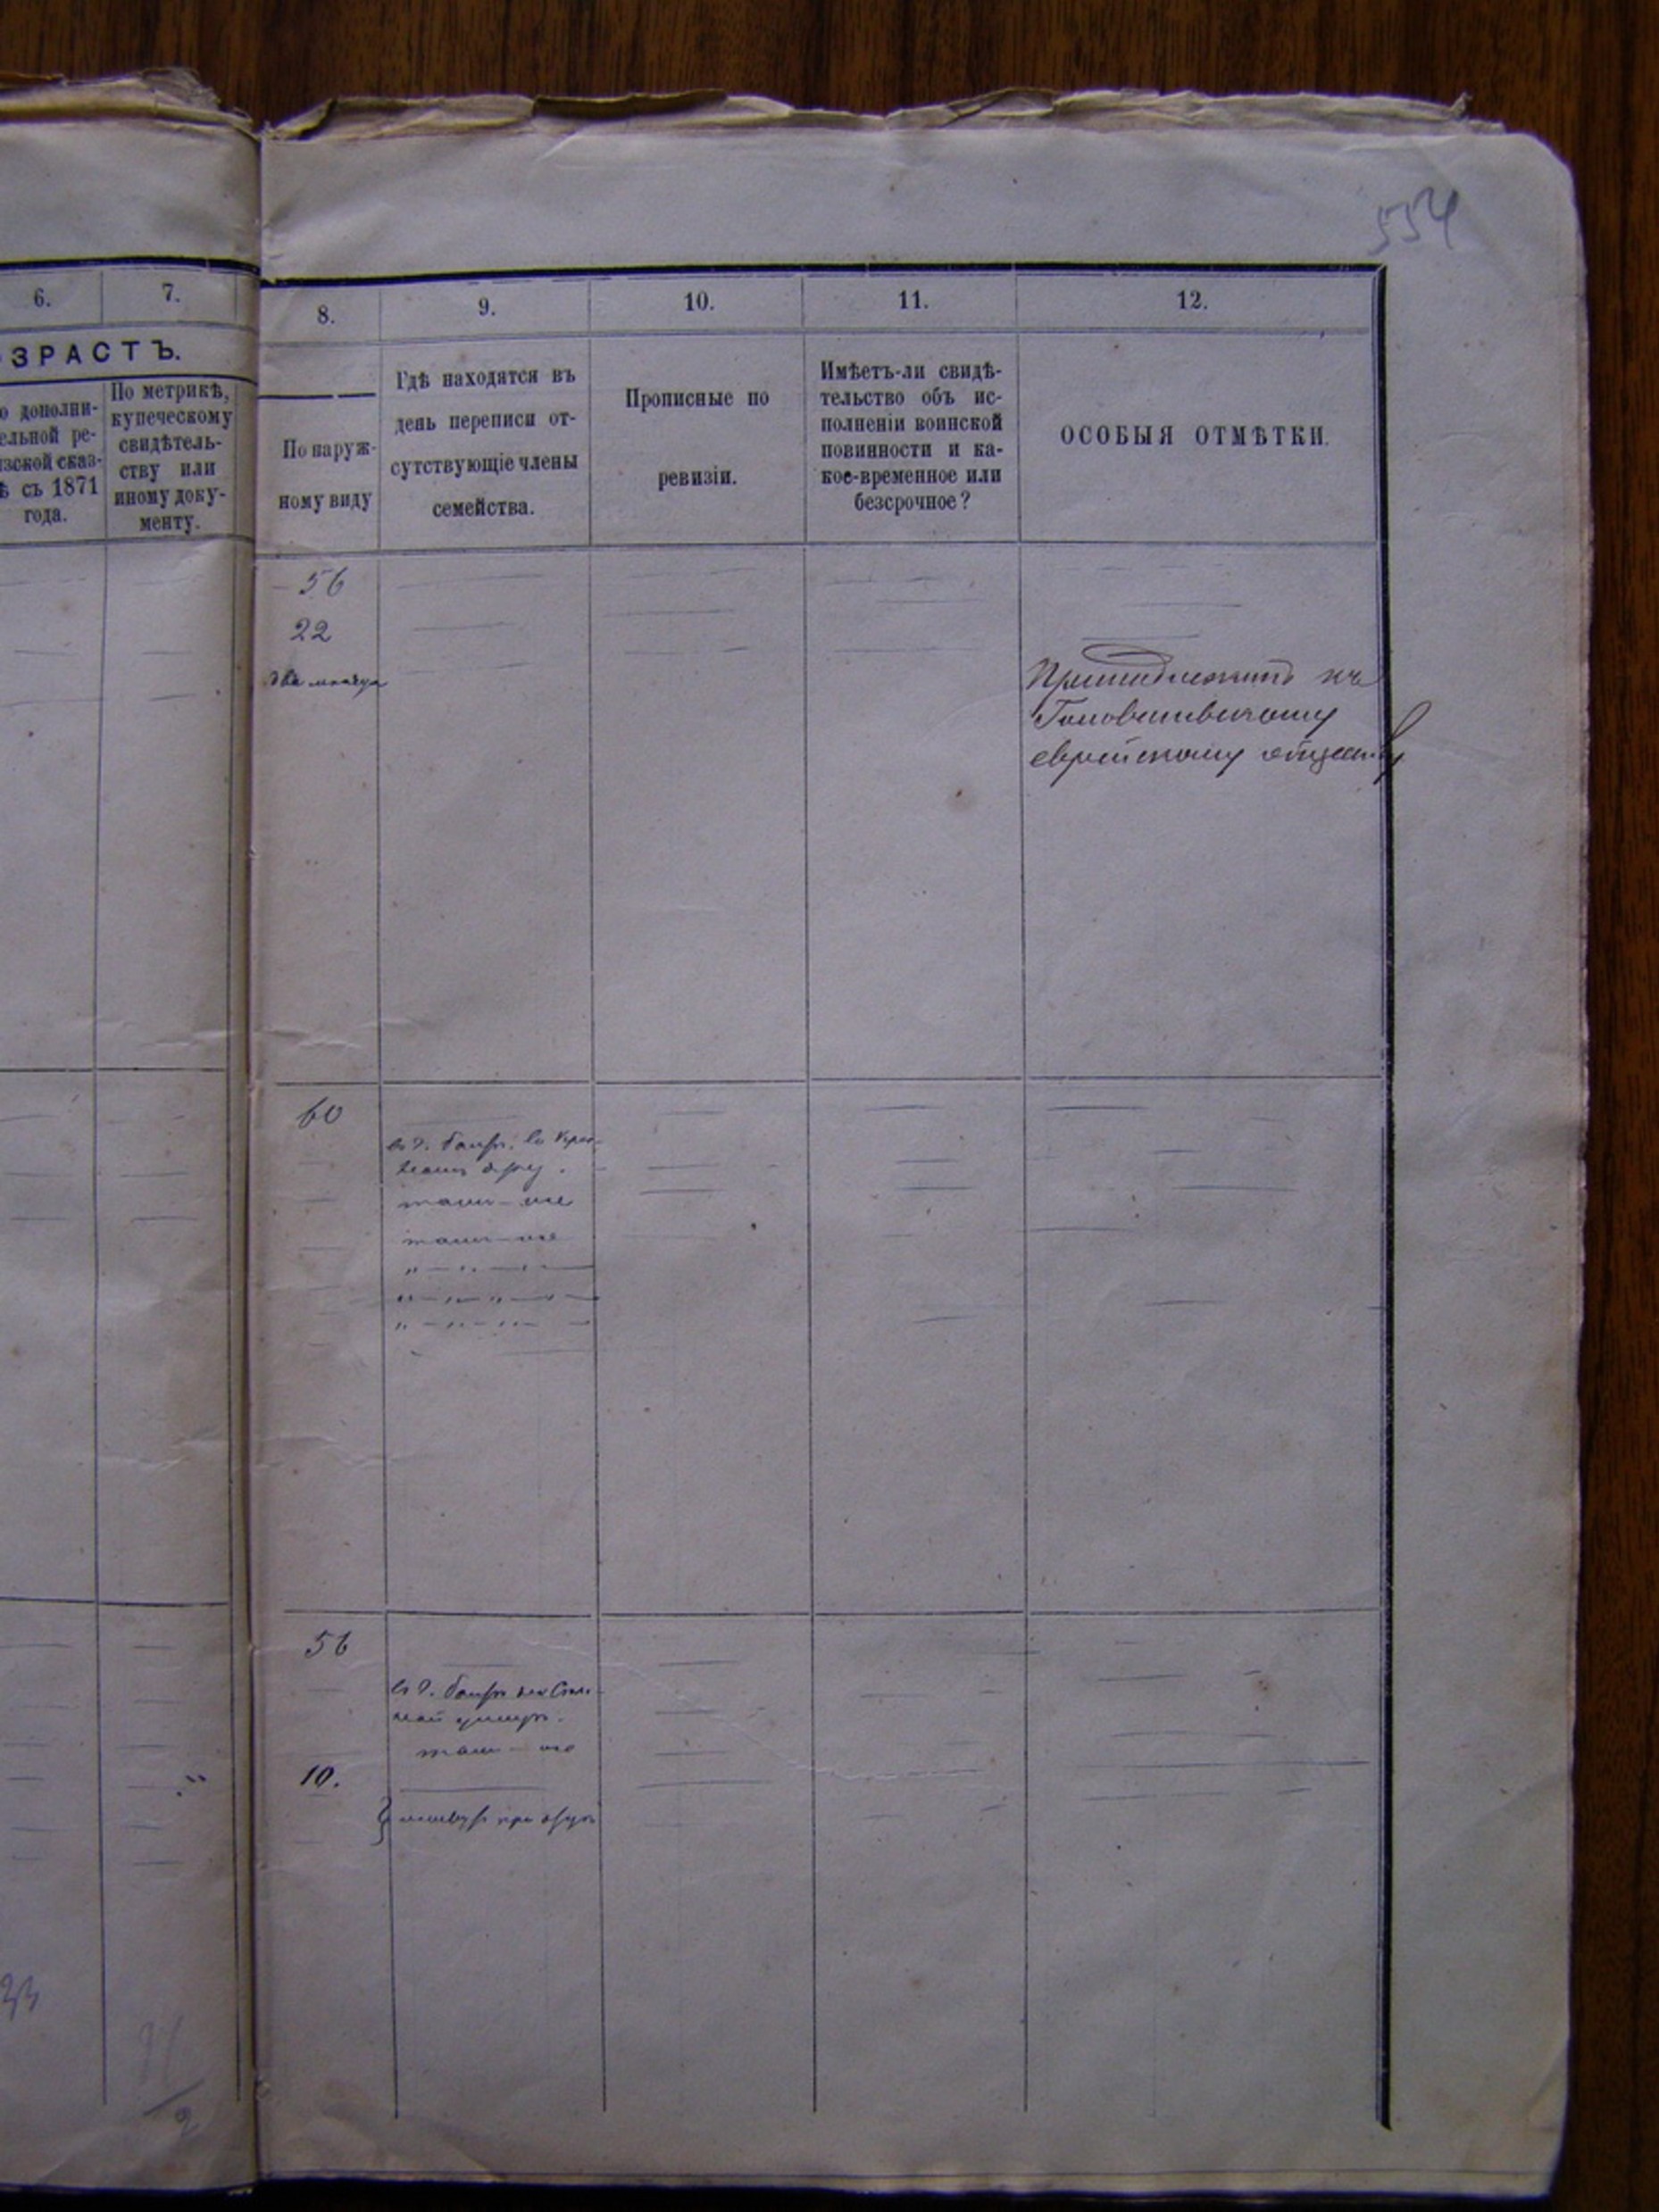 554
6.
7.
8.
9.
10.
11.
12.
ЗРАСТЪ.
о дополни-
ельной ре-
изской сказ-
ѣ съ 1871
года.
По метрикѣ,
купеческому
свидѣтель-
ству или
иному доку-
менту.
По наруж-
ному виду
Гдѣ находятся въ
день переписи от-
сутствующіе члены
семейства.
Прописные по
ревизіи.
Имѣетъ-ли свидѣ-
тельство объ ис-
полненіи воинской
повинности и ка-
кое-временное или
безсрочное?
ОСОБЫЯ ОТМѢТКИ.
56
22
два мѣсяца
Принадлежитъ къ
еврейскому обществу
60
тамъ-же
тамъ-же
56
тамъ-же
10.
живутъ при отцѣ
33
2